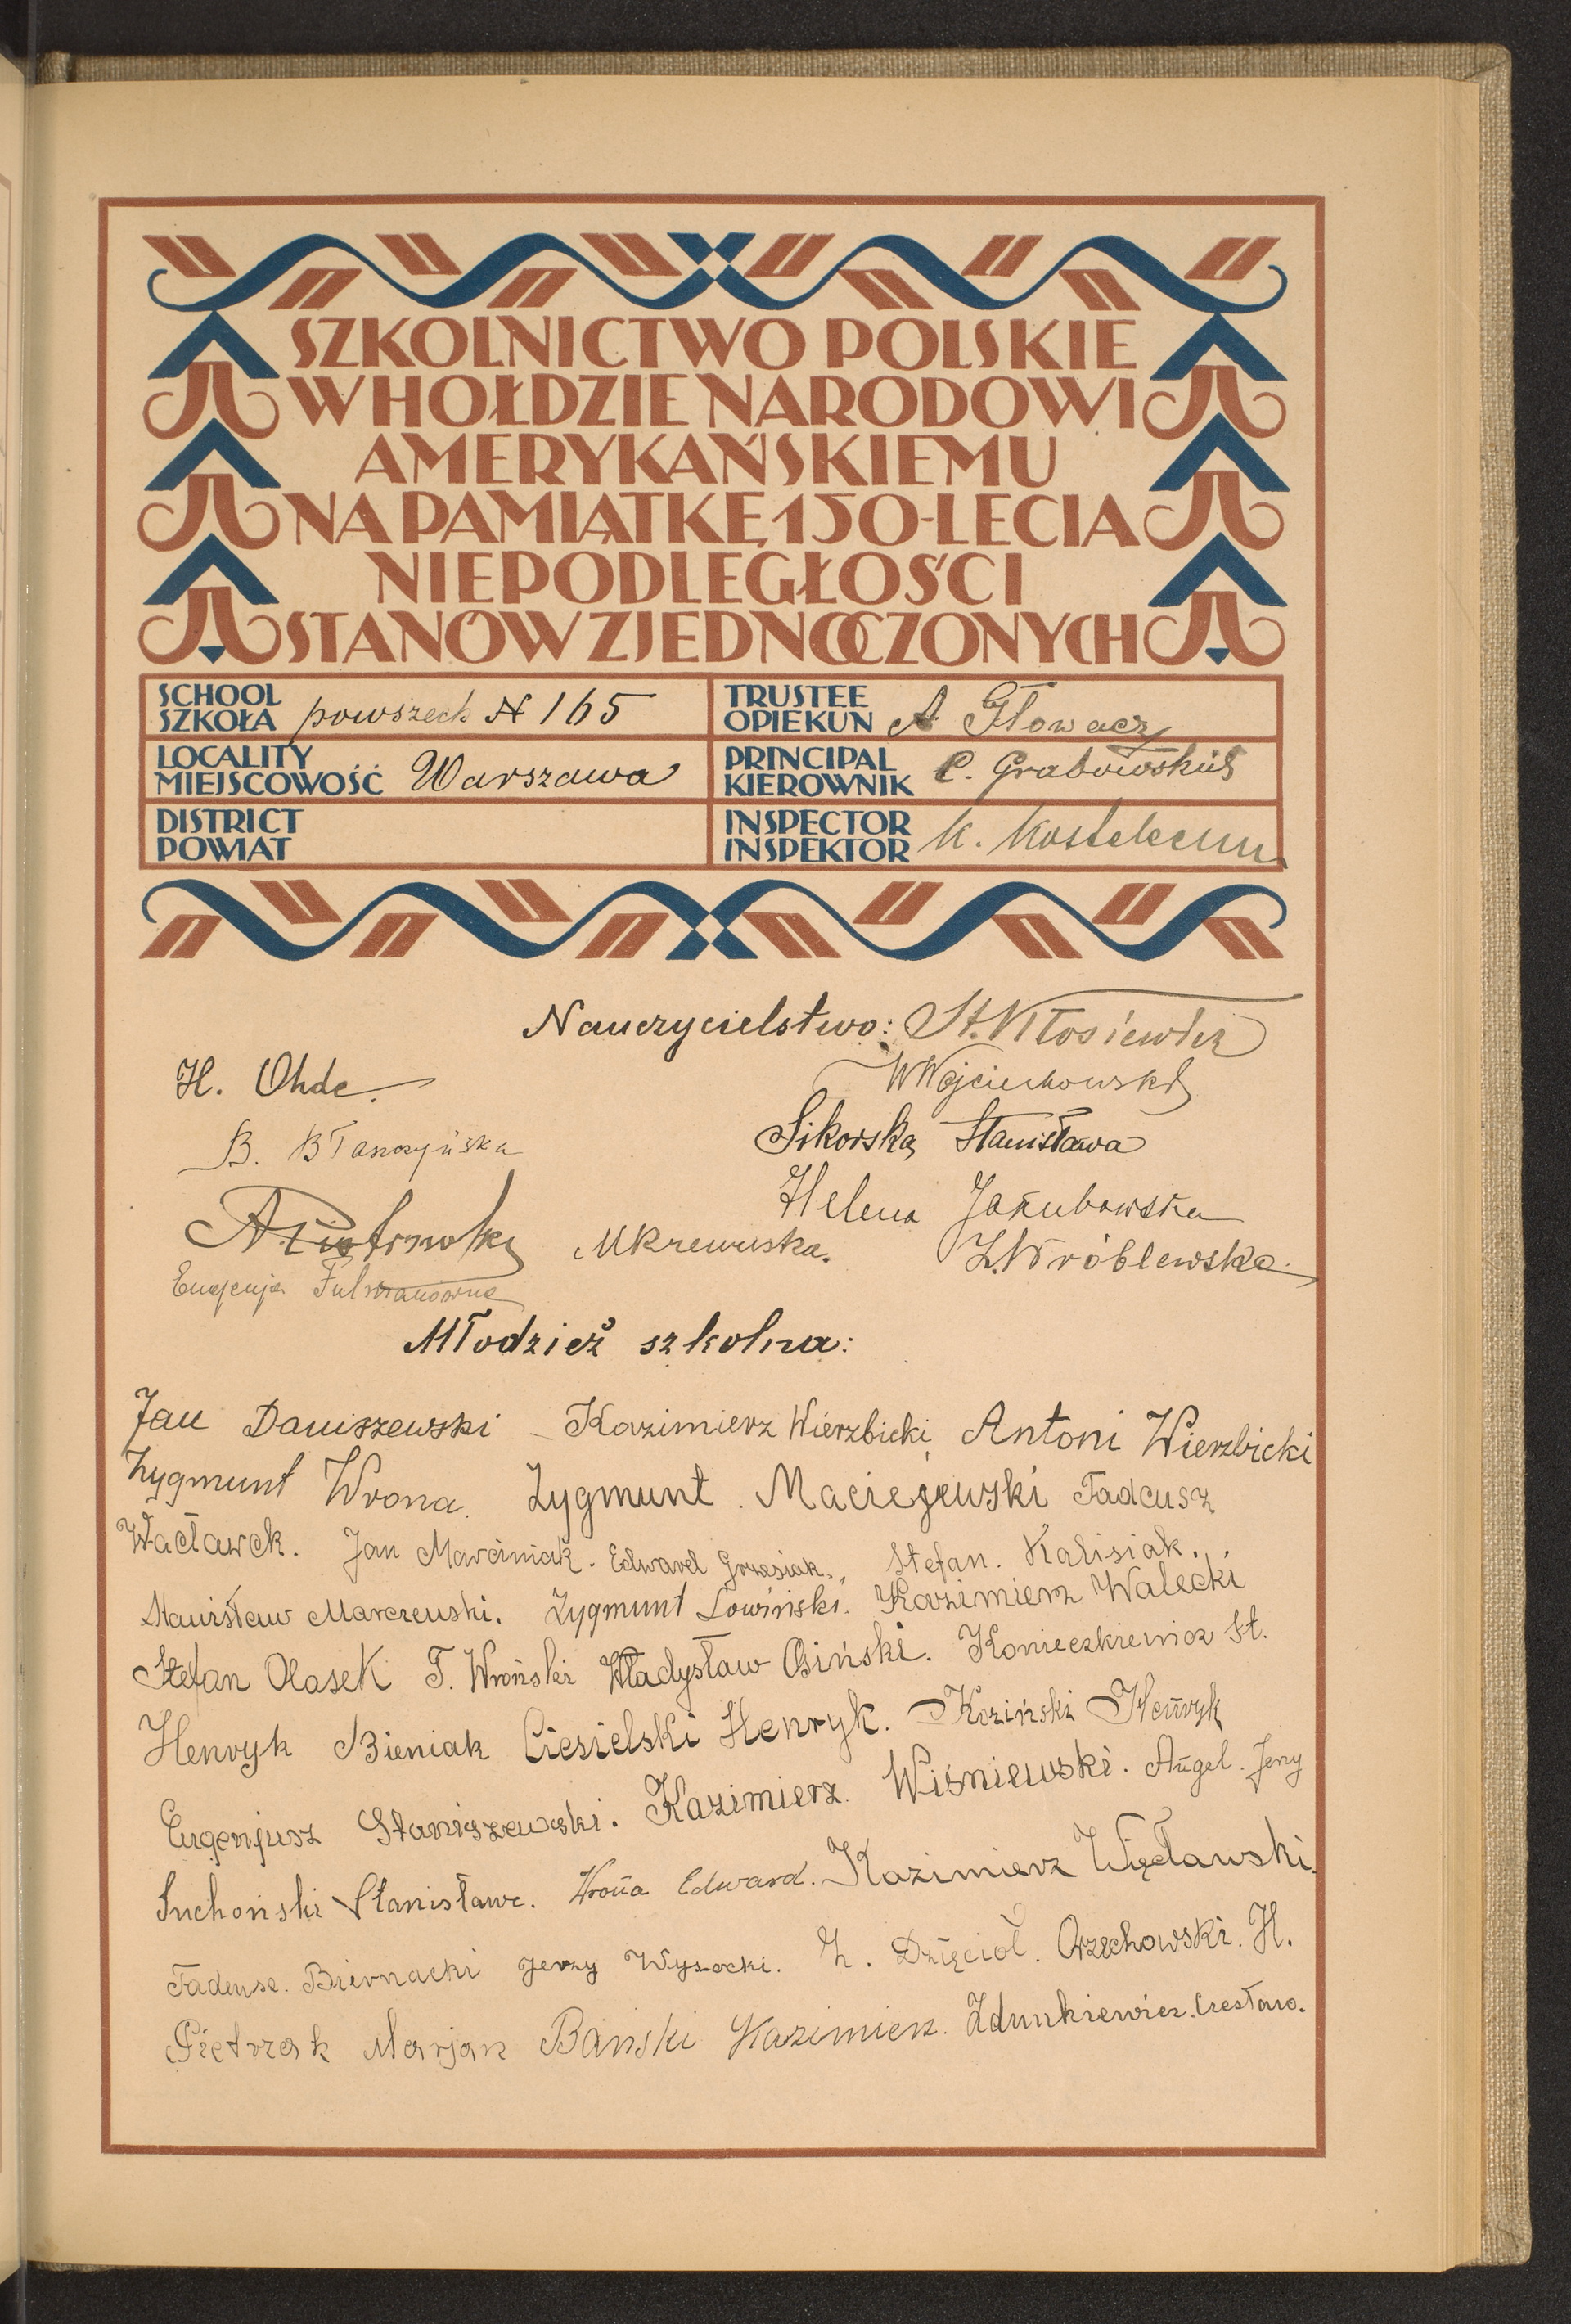 SZKOLNICTWO POLSKIE
W HOŁDZIE NARODOWI
AMERYKAŃSKIEMU
NA PAMIĄTKĘ 150-LECIA
NIEPODLEGŁOŚCI
STANÓW ZJEDNOCZONYCH
SCHOOL
SZKOŁA powszech № 165
TRUSTEE
OPIEKUN A Głowacz
LOCALITY
MIEJSCOWOŚĆ Warszawa
PRINCIPAL
KIEROWNIK C. Grabowski
DISTRICT
POWIAT
INSPECTOR
INSPEKTOR K.
Nauczycielstwo: St. Kłosiewicz
H. Ohde.
W Wojciechowski
B. Błaszczyńska
Sikorska Stanisława
Helena Jakubowska
A. Piotrowski
M Krzewuska.
Z. Wróblewska.
Eugenja
Młodzież szkolna:
Jan Daniszewski - Kazimierz Wierzbicki Antoni Wierzbicki
Zygmunt Wrona. Zygmunt. Maciejewski Tadeusz
Wacławek. Jan Marciniak. Edward Grzesiak. Stefan. Kalisiak.
Stanisław Marczewski. Zygmunt Łowiński. Kazimierz Walecki
Stefan Olasek T. Wroński Władysław Osiński. Konieczkiewicz St.
Henryk Bieniak Ciesielski Henryk. Koziński Henryk
Eugenjusz Staniszewski. Kazimierz. Wiśniewski. Angel. Jerzy
Suchoński Stanisław. Wrona Edward. Kazimierz Węcławski.
Tadeusz. Biernacki Jerzy Wysocki. Z. Dzięcioł. Orzechowski. H.
Pietrzak Marjan Bański Kazimierz. Zdunkiewicz. Czesław.